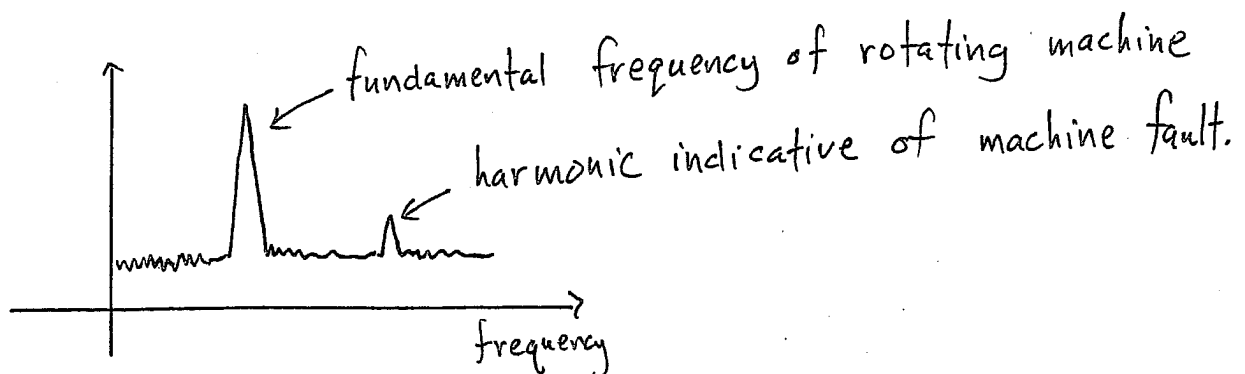 fundamental frequency of rotating machine
harmonic indicative of machine fault.
frequency